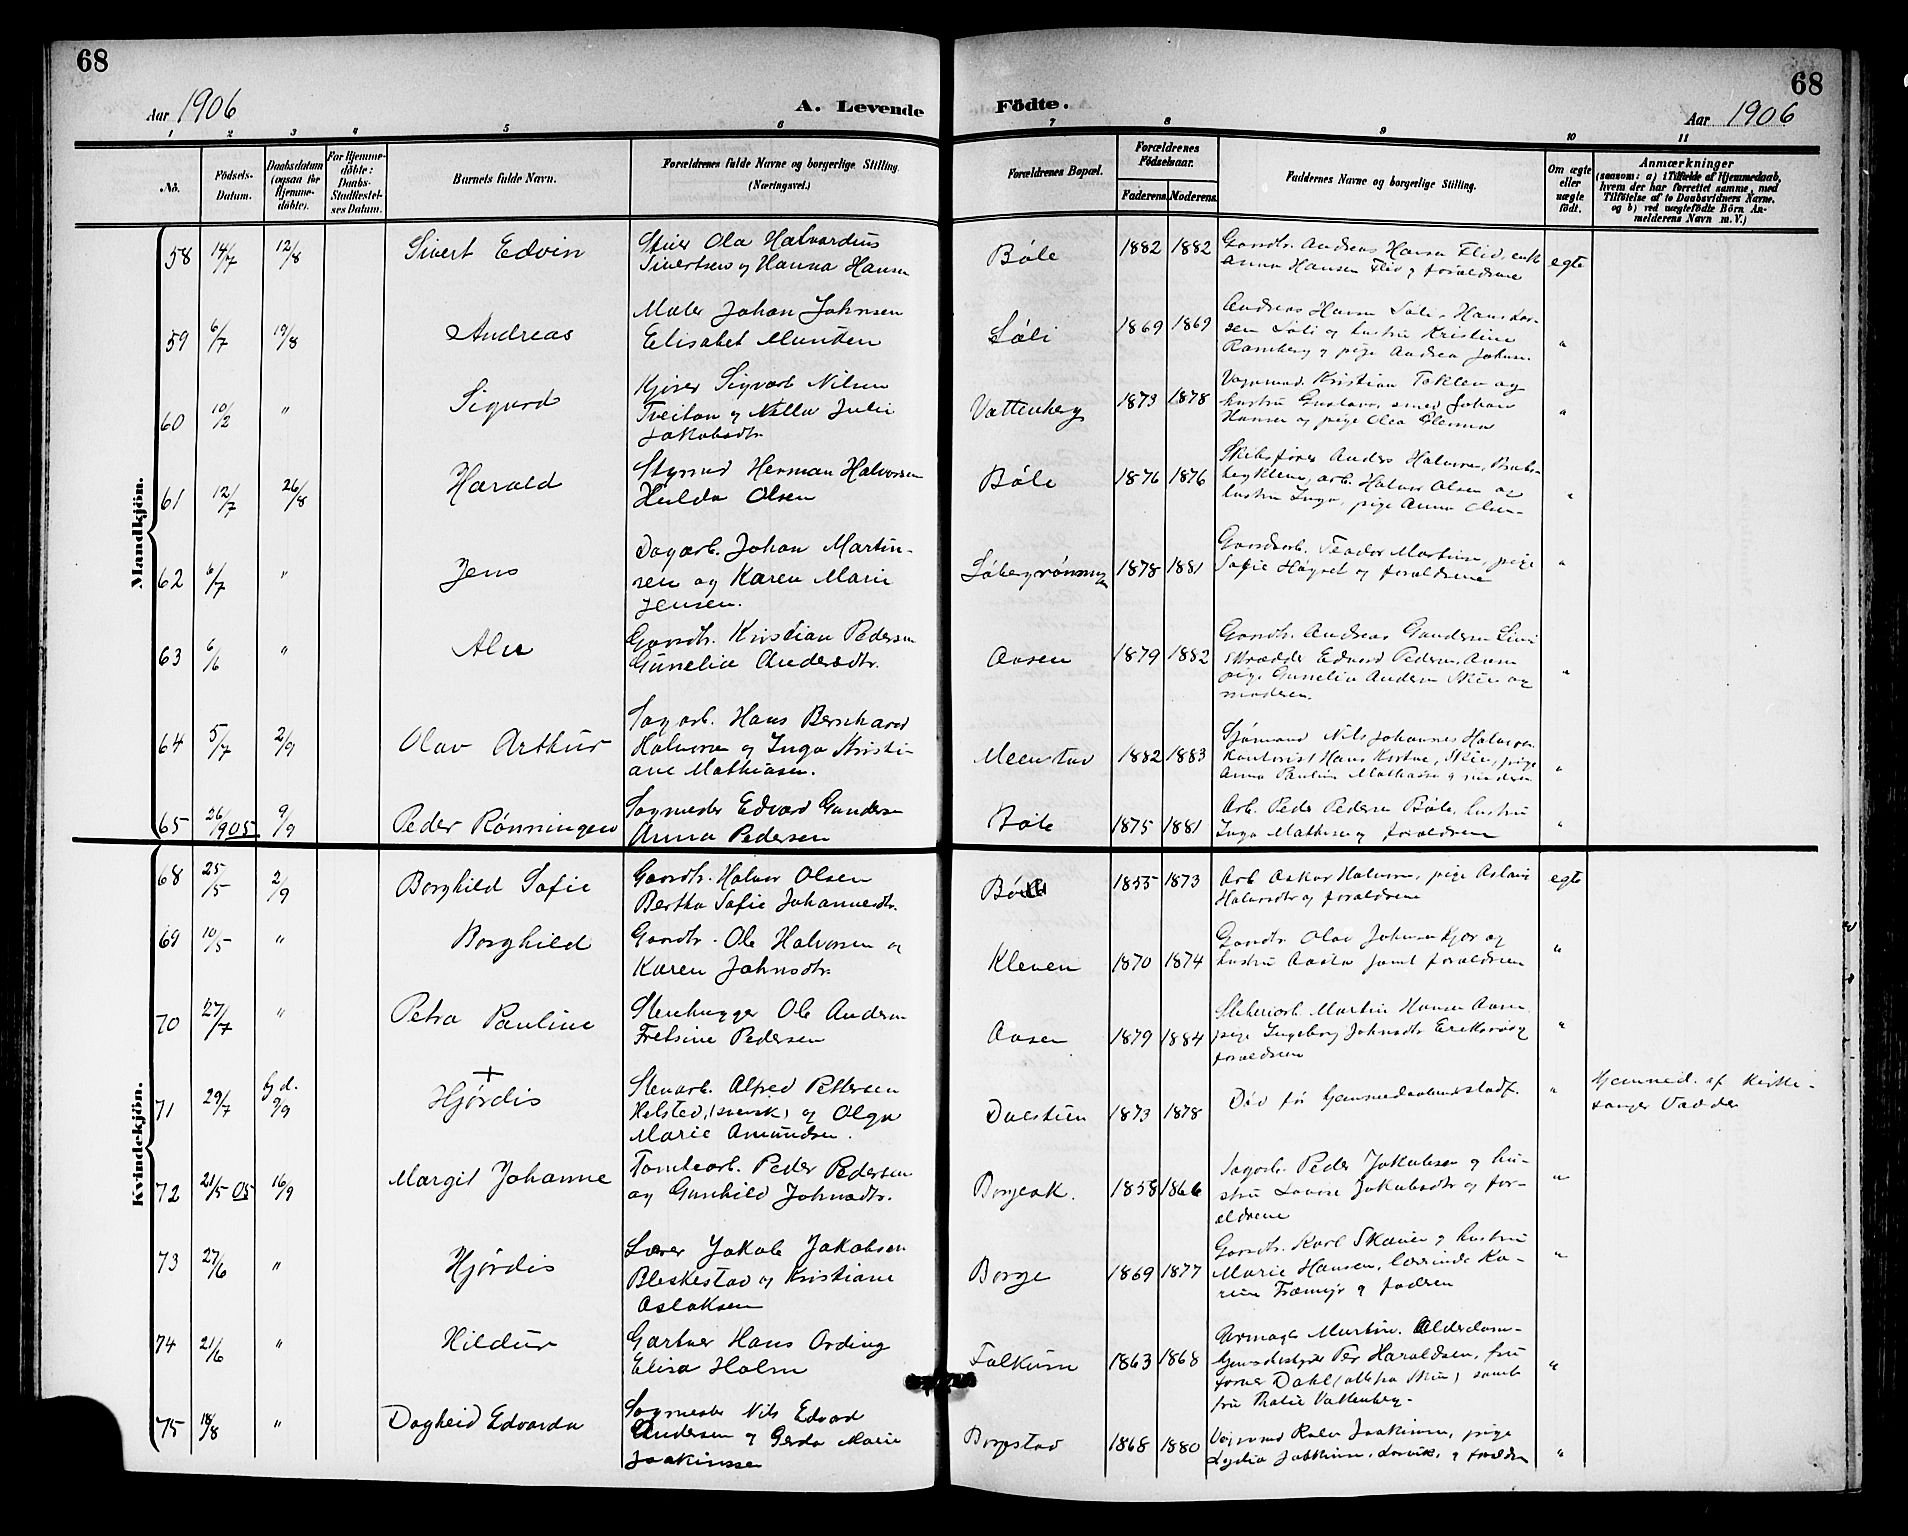 68
68
Aar 1906
A. Levende Födte.
Aar 1906
1 2 3 4 5 6 7 8 9 10 11
No.
Födsels-Datum.
Daabsdatum (ogsaa for Hjemme-döbte).
For Hjemme-döbte: Daabs-Stadfestel-ses Datum.
Barnets fulde Navn.
Forældrenes fulde Navne og borgerlige Stilling. (Næringsvei.)
Forældrenes Bopæl.
Forældrenes Födselsaar.
Faderens. Moderens.
Faddernes Navne og borgerlige Stilling.
Om ægte eller uægte födt.
Anmærkninger
(saasom: a) i Tilfælde af Hjemmedaab, hvem der har forrettet samme, med Tilföielse af to Daabsvidners Navne, og b) ved uægtefödte Börn An-melderens Navn m. V.)
Mandkjön.
58 14/7 12/8 Sivert Edvin
Stuer Ola Halvardius
Sivertsen og Hanna Hansen
Bøle 1882 1882
Gaardbr. Andreas Hansen Flid, enke
Anna Hansen Flid og forældrene
egte
59 6/7 19/8 Andreas
Maler Johan Johnsen
Elisabet Munden
Søli 1869 1869
Andreas Hansen Søli, Hans Lar-
sen Søli og hustru Kristine
Ramberg og pige Andrea Johnsen
"
60 10/2 " Sigurd
Kjører Sigvart Nilsen
Tveitan og Nilla Julie
Jakobsdtr.
Vattenberg 1873 1878
Vognmd. Kristian Toklev og
hustru Gustava, smed Johan
Hansen og pige Olea
"
61 12/7 26/8 Harald
Styrmd Herman Halvorsen
Hulda Olsen
Bøle 1876 1876
Skibsfører Anders Halvorsen,
arb. Halvor Olsen og
hustru Inga, pige Anna Olsen
"
62 6/7 " Jens
Dagarb. Johan Martin-
sen og Karen Marie
Jensen.
1878 1881
Gaardarb. Teodor Martinsen, pige
Sofie Høgset og forældrene
"
63 6/6 " Alu
Gaardbr. Kristian Pedersen
Gunelia Andersdtr.
Aasen 1879 1882
Gaardbr. Andreas Gundersen
skrædder Edvard Pedersen Aasen
pige Gunelia Andersen Skien og
moderen.
"
64 5/7 2/9 Olav Arthur
Sagarb. Hans Bernhard
Halvorsen og Inga Kristi-
ane Mathiasen.
Meenstad 1882 1883
Sjømand Nils Johannes Halvorsen
Kontorist Hans, Skien, pige
Anna Pauline Mathiasen og moderen
"
65 26/9 05 9/9 Peder Rønningen
Sagmester Edvard Gundersen
Anna Pedersen
Bøle 1875 1881
Arb. Peder Pedersen Bøle, hustru
Inga Mathisen og forældrene
"
Kvindekjön.
68 25/5 2/9 Borghild Sofie
Gaardbr. Halvor Olsen
Bertha Sofie Johannesdtr.
Bøle 1855 1873
Arb. Oskar Halvorsen, pige Aslaug
Halvorsdtr og forældrene
egte
69 10/5 " Borghild
Gaardbr. Ole Halvorsen og
Karen Johnsdtr.
Kleven 1870 1874
Gaardbr. Olav Johnsen Kjær og
hustru Aasta samt forældrene
"
70 27/7 " Petra Pauline
Stenhugger Ole Andersen
Fretsine Pedersen
Aasen 1879 1884
Sliberiarb. Martin Hansen Aasen,
pige Ingeborg Johnsdtr Eriksrød og
forældrene
"
71 29/7 Gj.d. 9/9 +
Hjørdis
Stenarb. Alfred Pettersen
Helsted, (svensk) og Olga
Marie Amundsen.
Dalstien 1873 1878
Død før Hjemmedaabens stadf.
"
Hjemmed. af Kirke-
sanger Vadder
72 21/5 05 16/9 Margit Johanne
Tomtearb. Peder Pedersen
og Gunhild Johnsdtr.
Borgeak. 1858 1866
Sagarb. Peder Jakobsen og hu-
stru Laura Jakobsdtr og for-
ældrene
"
73 27/6 " Hjørdis
Lærer Jakob Jakobsen
Bleskestad og Kristiane
Aslaksen
Borge 1869 1877
Gaardbr. Karl Skauen og hustru
Marie Hansen, lærerinde Ka-
ren og faderen
"
74 21/6 " Hildur
Gartner Hans Ording
Elisa Holm
Falkum 1863 1868
Martin. Alderdoms-
hjemsbestyrer Per Haraldsen, fru
Dahl (alle fra Skien) samt
fru Thalie Vattenberg.
"
75 18/8 " Dagheid Edvarda
Sagmester Nils Edvard
Andersen og Gerda Marie
Joakimsen
Borgestad 1868 1880
Vognmd Joakimsen, pige
Lydia Joakimsen, Larvik, og forældrene
"